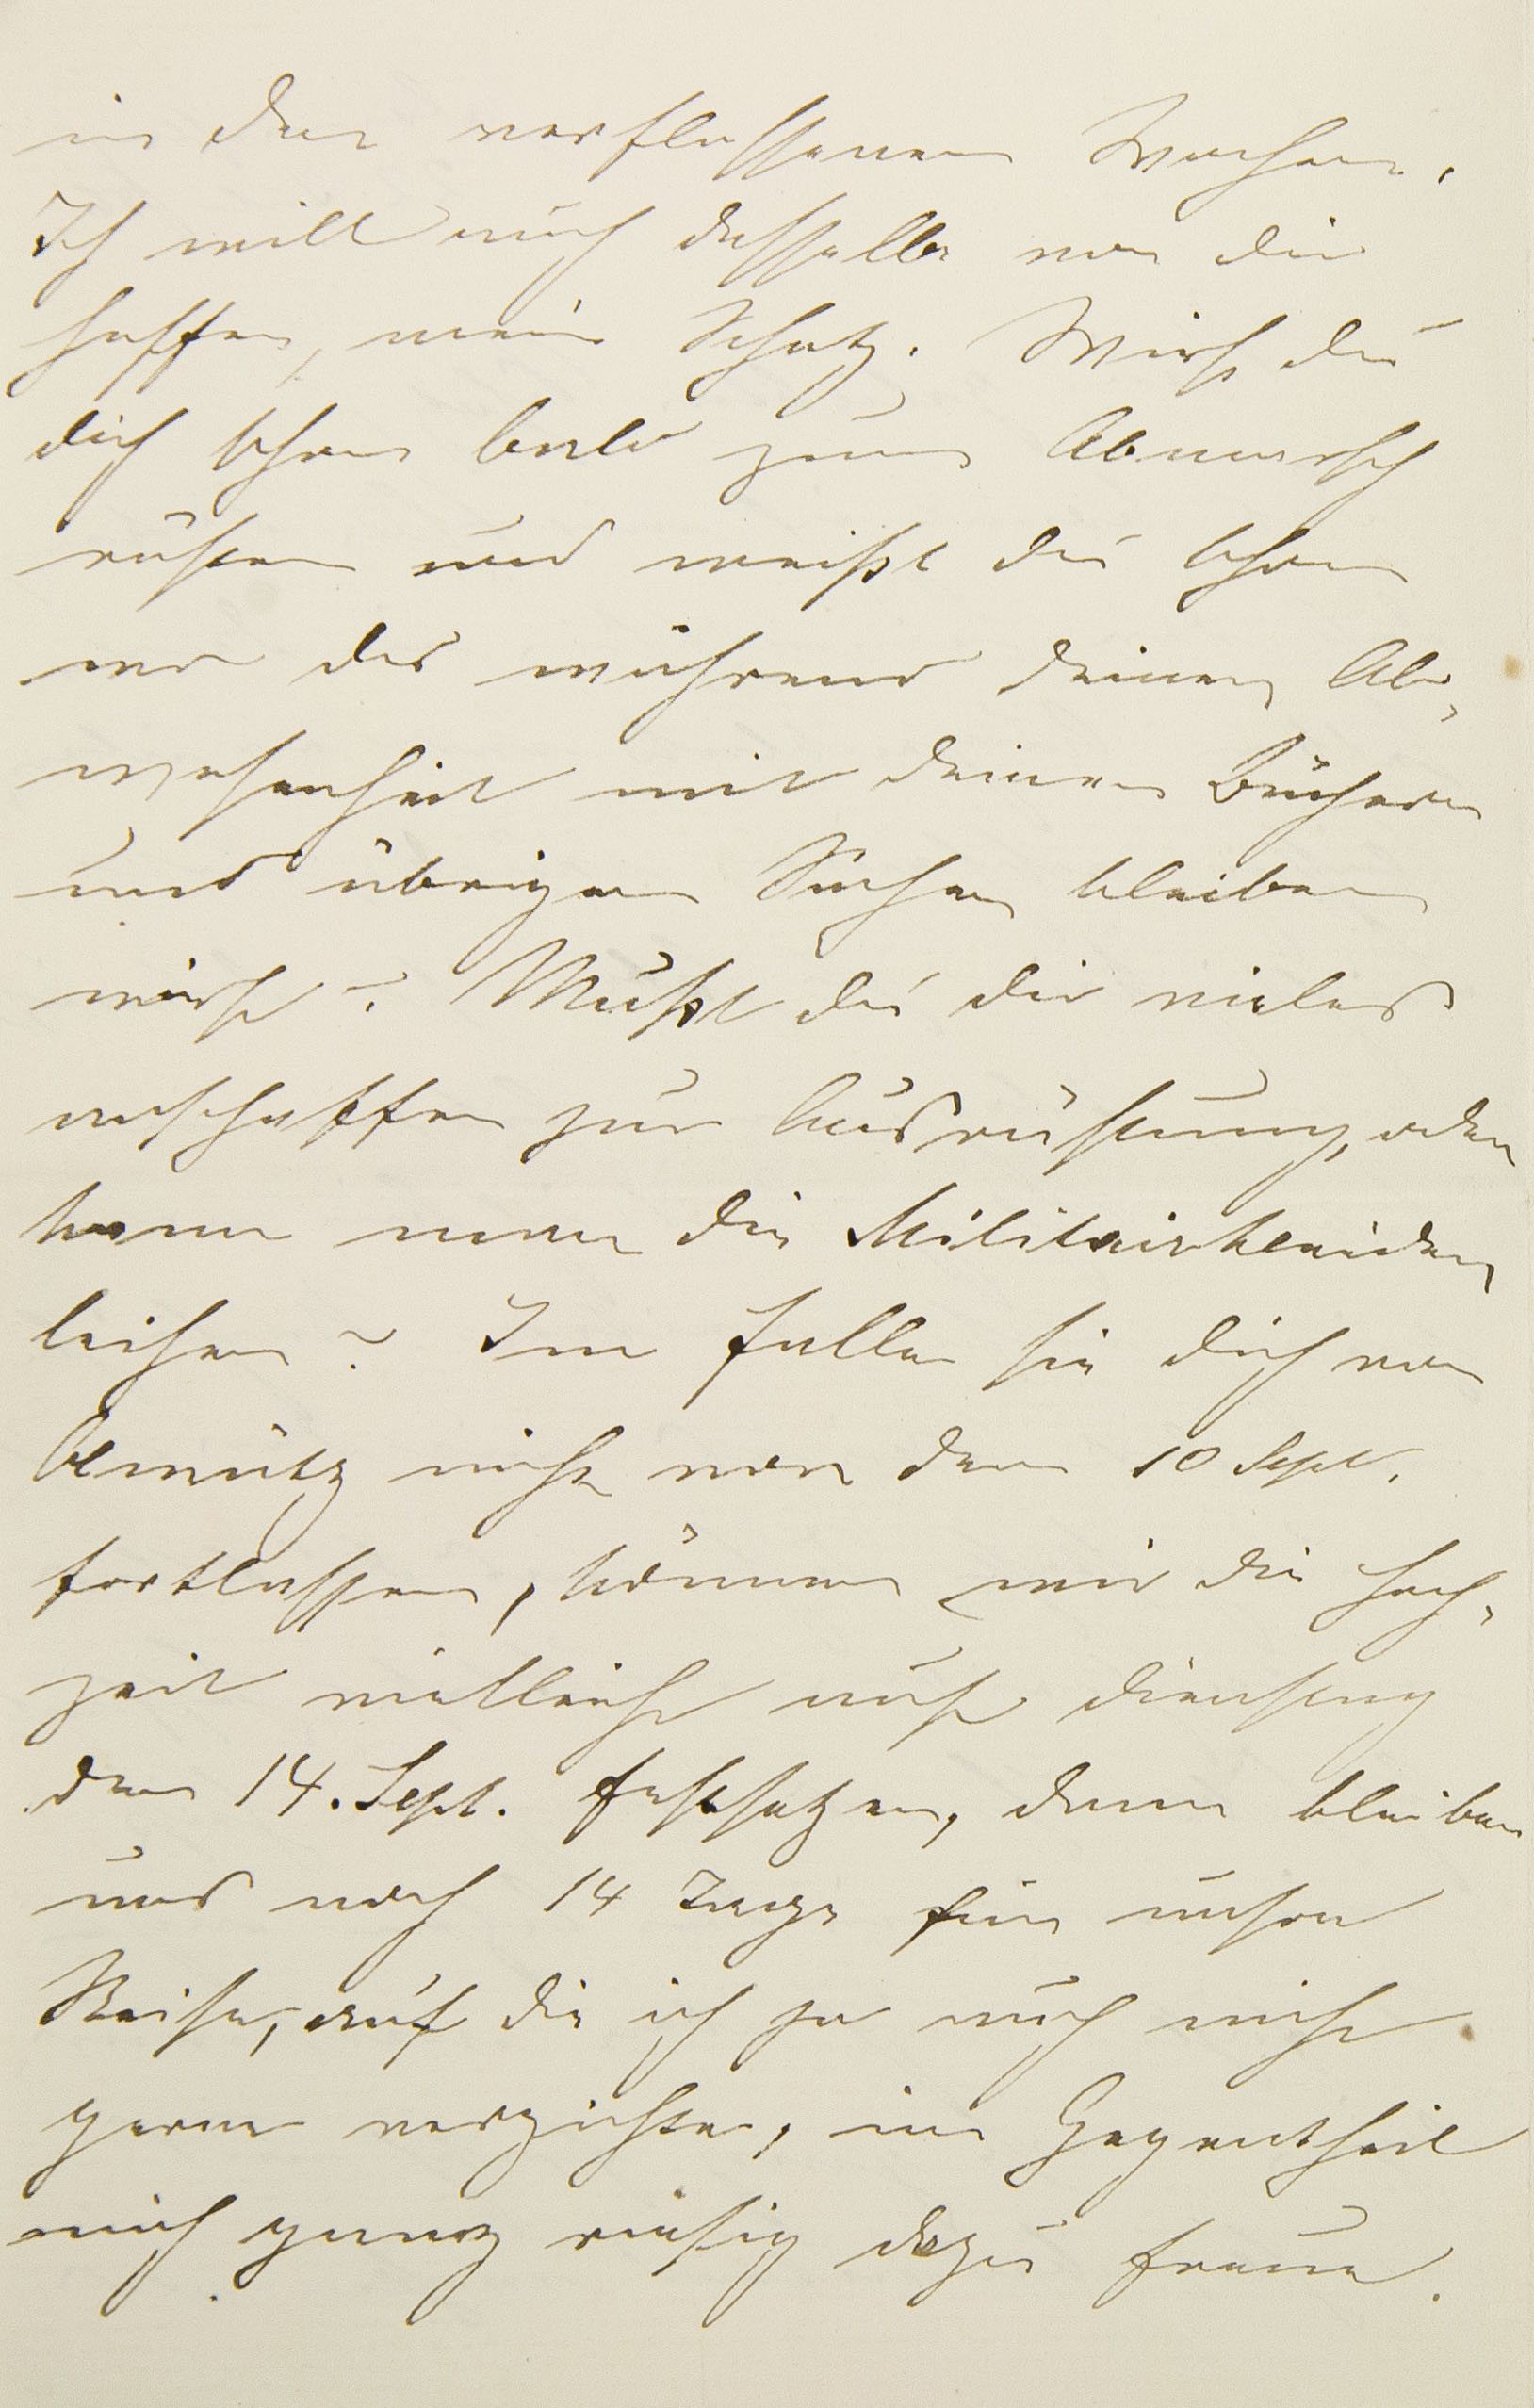 in den verflossenen Wochen.
Ich will auch dasselbe von dir
hoffen, mein Schatz. Wirst du
dich schon bald zum Abmarsch
rüsten und weißt du schon
wo du während deiner Ab-
wesenheit mit deinen Büchern
und übrigen Sachen bleiben
wirst? Mußt du dir vieles
anschaffen zur Ausrüstung, oder
kann man die Militairkleider
leihen? Im Falle sie dich von
Olmütz nicht vor dem 10 Sept.
fortlassen, können wir die Hoch-
zeit vielleicht auf Dienstag
den 14. Sept. festsetzen, dann bleiben
uns noch 14 Tage für unsre
Reise, auf die ich ja auch nicht
gerne verzichte, im Gegentheil
mich ganz riesig dazu freue.